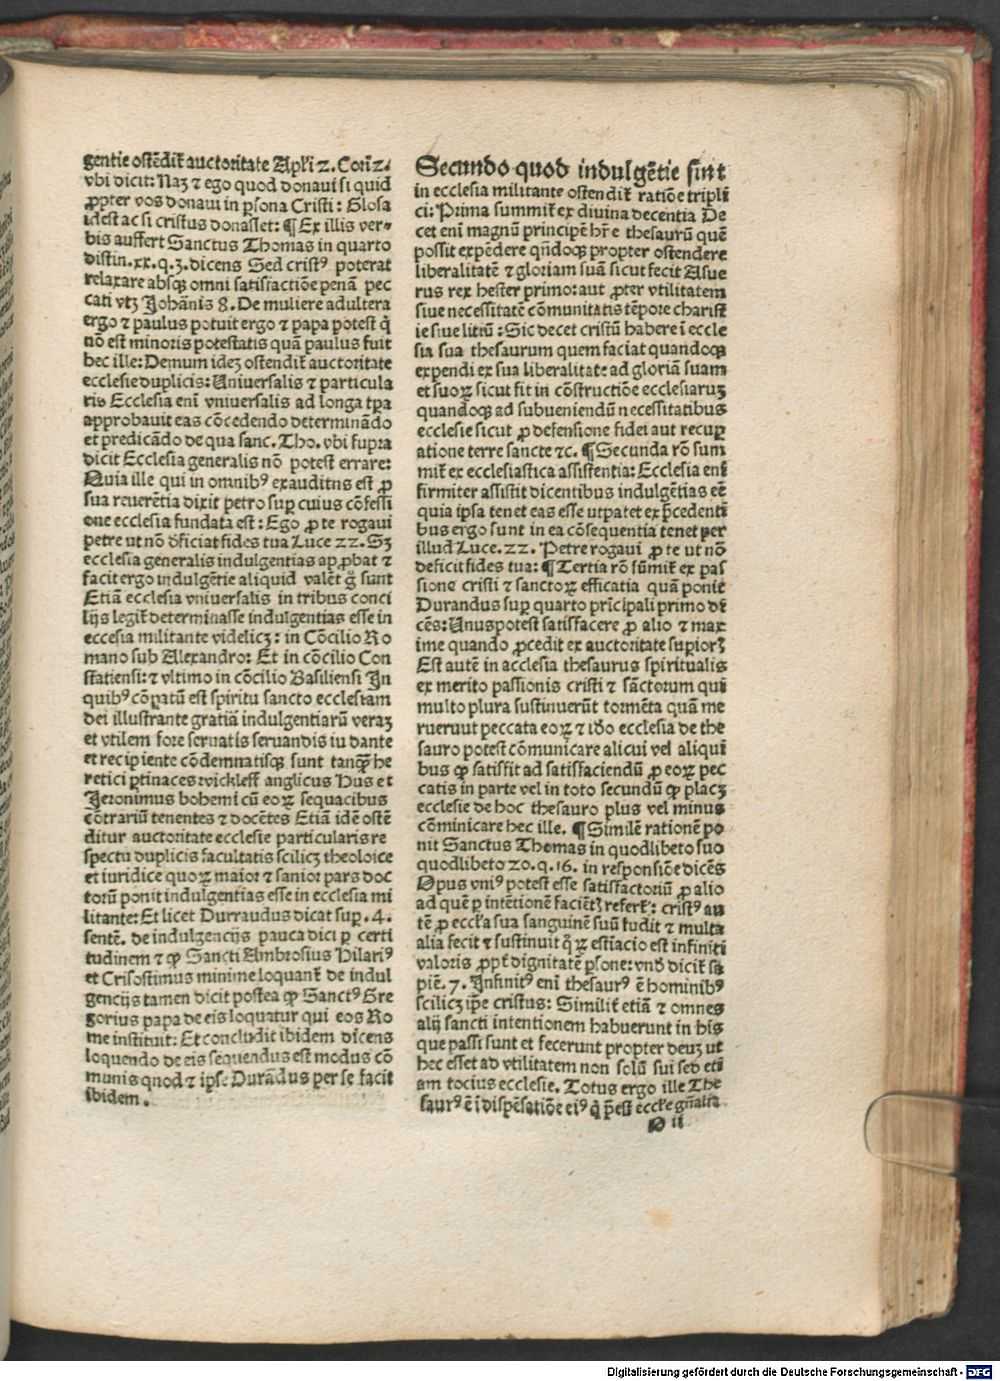 gentie ostēdit᷑ auctoritate Apl'i 2. Corin̄ 2.
vbi dicit: Naȝ ⁊ ego quod donaui si quid
ꝓpter vos donaui in ꝑsona Cristi: Glosa
idest ac si cristus donasset: ¶ Ex illis ver-
bis auffert Sanctus Thomas in quarto
distin. xx. q. 3. dicens Sed cristꝰ poterat
relaxare absqꝫ omni satisfactiōe penā pec
cati vtꝫ Johānis 8. De muliere adultera
ergo ⁊ paulus potuit ergo ⁊ papa potest q̇
nō est minoris potestatis quā paulus fuit
hec ille: Demum ideȝ ostendit᷑ auctoritate
ecclesie duplicis: Uniuersalis ⁊ particula
ris Ecclesia eni vniuersalis ad longa tꝑa
approbauit eas cōcedendo determinādo
et predicādo de qua sanc. Tho. vbi supra
dicit Ecclesia generalis nō potest errare:
Quia ille qui in omnibꝰ exauditus est ꝓ
sua reuerētia dixit petro suꝑ cuius cōfessi
one ecclesia fundata est: Ego ꝓ te rogaui
petre ut nō d̄ficiat fides tua Luce 22. Sȝ
ecclesia generalis indulgentias apꝓbat ⁊
facit ergo indulgētie aliquid valēt ḡ sunt
Etiā ecclesia vniuersalis in tribus conci
lijs legit᷑ determinasse indulgentias esse in
eccesia militante videlicȝ: in Cōcilio Ro
mano sub Alexandro: Et in cōcilio Con
statiensi: ⁊ vltimo in cōcilio Basiliensi In
quibꝰ cōꝑatū est spiritu sancto ecclesiam
dei illustrante gratiā indulgentiarū veraȝ
et vtilem fore seruatis seruandis iu dante
et recipiente cōdemnatisqꝫ sunt tanqꝫ̄ he
retici ꝑtinaces: wickleff anglicus Hus et
Jeronimus bohemi cū eoꝝ sequacibus
cōtrariū tenentes ⁊ docētes Etiā idē ostē
ditur auctoritate ecclesie particularis re
spectu duplicis facultatis scilicȝ theoloice
et iuridice quoꝝ maior ⁊ sanior pars doc
torū ponit indulgentias esse in ecclesia mi
litante: Et licet Durraudus dicat suꝑ. 4.
sentē. de indulgencijs pauca dici ꝑ certi
tudinem ⁊ ꝙ Sancti Ambrosius Hilariꝰ
et Crisostimus minime loquant᷑ de indul
gencijs tamen dicit postea ꝙ Sanctꝰ Gre
gorius papa de eis loquatur qui eos Ro
me instituit: Et concludit ibidem dicens
loquendo de eis sequendus est modus cō
munis quod ⁊ ipse Durādus per se facit
ibidem.
Secundo quod indulgētie sint
in ecclesia militante ostendit᷑ ratiōe tripli
ci: Prima summit᷑ ex diuina decentia De
cet eni magnū principē hr̄e thesaurū quē
possit expēdere qn̄doqꝫ propter ostendere
liberalitatē ⁊ gloriam suā sicut fecit Asue
rus rex hester primo: aut ꝓter vtilitatem
siue necessitatē cōmunitatis tēpore charist
ie siue litiū: Sic decet cristū habere ī eccle
sia sua thesaurum quem faciat quandoqꝫ
expendi ex sua liberalitate ad gloriā suam
et suoꝝ sicut fit in cōstructiōe ecclesiaruȝ
quandoqꝫ ad subueniendū necessitatibus
ecclesie sicut ꝓ defensione fidei aut recuꝑ
atione terre sancte ⁊c. ¶ Secunda rō sum
mit᷑ ex ecclesiastica assistentia: Ecclesia eni
firmiter assistit dicentibus indulgētias eē
quia ipsa tenet eas esse ut patet ex p̄cedenti
bus ergo sunt in ea cōsequentia tenet per
illud Luce. 22. Petre rogaui ꝓ te ut nō
deficit fides tua: ¶ Tertia rō sūmit᷑ ex pas
sione cristi ⁊ sanctoꝝ efficatia quā ponit
Durandus suꝑ quarto prīcipali primo di
cēs: Unus potest satisfacere ꝓ alio ⁊ max
ime quando ꝓcedit ex auctoritate suꝑioꝝ
Est autē in acclesia thesaurus spiritualis
ex merito passionis cristi ⁊ sāctorum qui
multo plura sustinuerūt tormēta quā me
ruerunt peccata eoꝝ ⁊ iđo ecclesia de the
sauro potest cōmunicare alicui vel aliqui
bus ꝙ satisfit ad satisfaciendū ꝓ eoꝝ pec
catis in parte vel in toto secundū ꝙ placȝ
ecclesie de hoc thesauro plus vel minus
cōminicare hec ille. ¶ Similē rationē po
nit Sanctus Thomas in quodlibeto suo
quodlibeto 20. q. 16. in responsiōe dicēs
Opus vniꝰ potest esse satisfactoriū ꝓ alio
ad quē ꝑ intētionē faciētȝ refert᷑: cristꝰ au
tē ꝓ eccl'a sua sanguinē suū fudit ⁊ multa
alia fecit ⁊ sustinuit q̇ꝝ estiacio est infiniti
valoris ꝓpt᷑ dignitatē ꝑsone: vnđ dicit᷑ sa
piē. 7. Infinitꝰ eni thesaurꝰ ē hominibꝰ
scilicȝ ip̄e cristus: Similit᷑ etiā ⁊ omnes
alij sancti intentionem habuerunt in his
que passi sunt et fecerunt propter deuȝ ut
hec esset ad vtilitatem non solū sui sed eti
am tocius ecclesie. Totus ergo ille The
saurꝰ ē ī dispēsatiōe eiꝰ q̇ p̄est eccl'e gn̄ali:
ii
Digitalisierung gefördert durch die Deutsche Forschungsgemeinschaft - DFG